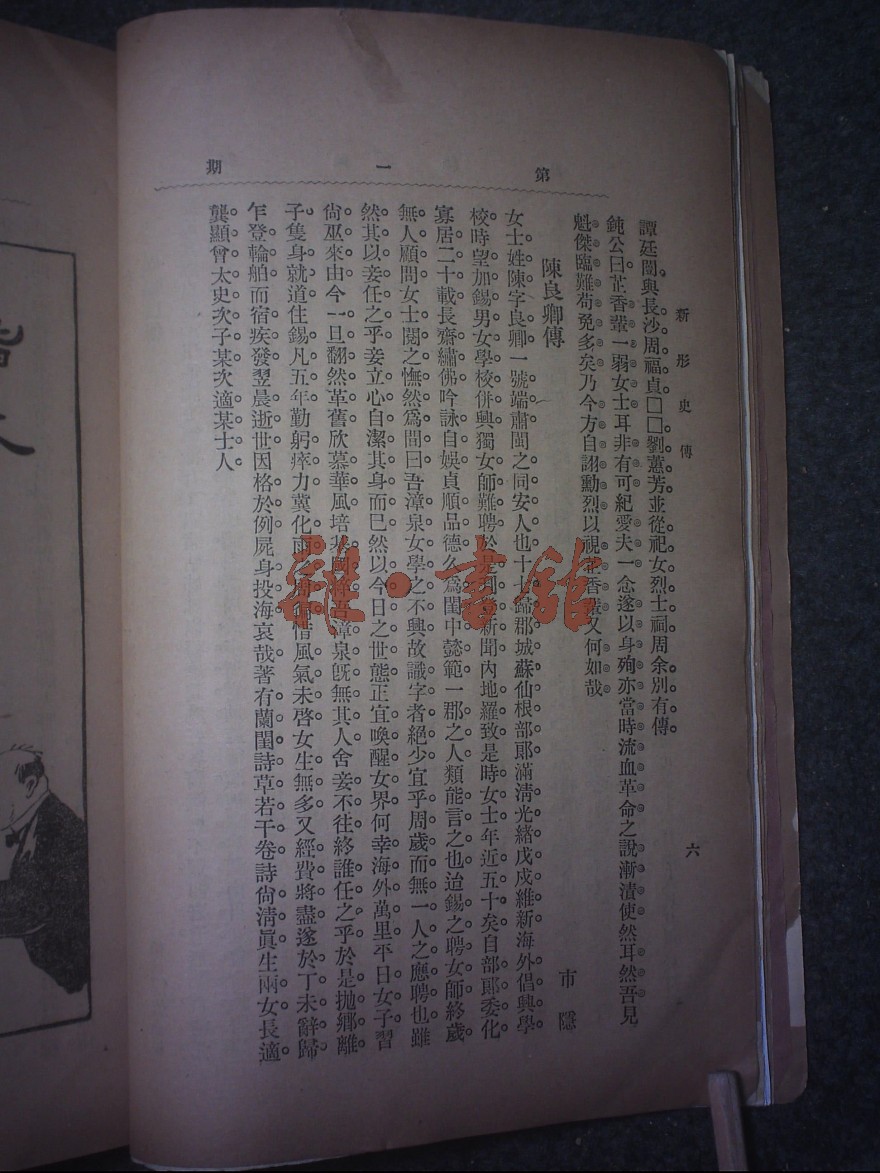 新彤史傳
六
第一期
譚廷闓與長沙周福貞□□劉蕙芳並從祀女烈士祠周余別有傳。
鈍公曰芷香輩一弱女士耳非有可紀愛夫一念遂以身殉亦當時流血革命之說漸漬使然耳然吾見
魁傑臨難苟免多矣乃今方自詡勳烈以視芷香輩又何如哉
陳良卿傳
市隱
女士姓陳字良卿一號端肅閩之同安人也十七歸郡城蘇仙根部郎滿清光緒戊戌維新海外倡興學
校時望加錫男女學校併興獨女師難聘於是刊諸新聞內地羅致是時女士年近五十矣自部郎委化
寡居二十載長齋繡佛吟詠自娛貞順品德久爲閨中懿範一郡之人類能言之也迨錫之聘女師終歲
無人顧問女士閱之憮然爲間曰吾漳泉女學之不興故識字者絕少宜乎周歲而無一人之應聘也雖
然其以妾任之乎妾立心自潔其身而已然以今日之世態正宜喚醒女界何幸海外萬里平日女子習
尙巫來由今一旦翻然革舊欣慕華風培
吾漳泉既無其人舍妾不往終誰任之乎於是拋鄉離
子隻身就道住錫凡五年勤躬瘁力冀化雨
惜風氣未啓女生無多又經費將盡遂於丁未辭歸
乍登輪舶而宿疾發翌晨逝世因格於例屍身投海哀哉著有蘭閨詩草若干卷詩尙淸眞生兩女長適
龔顯曾太史次子某次適某士人。
雜·書館